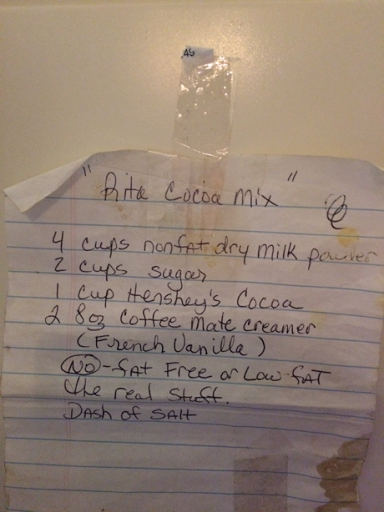 "Rita Cocoa Mix"
4 cups nonfat dry milk powder
2 cups sugar
1 cup Hershey's Cocoa
2 8oz Coffee mate creamer
(French Vanilla)
NO-fat Free or Low-fat
the real stuff.
Dash of salt